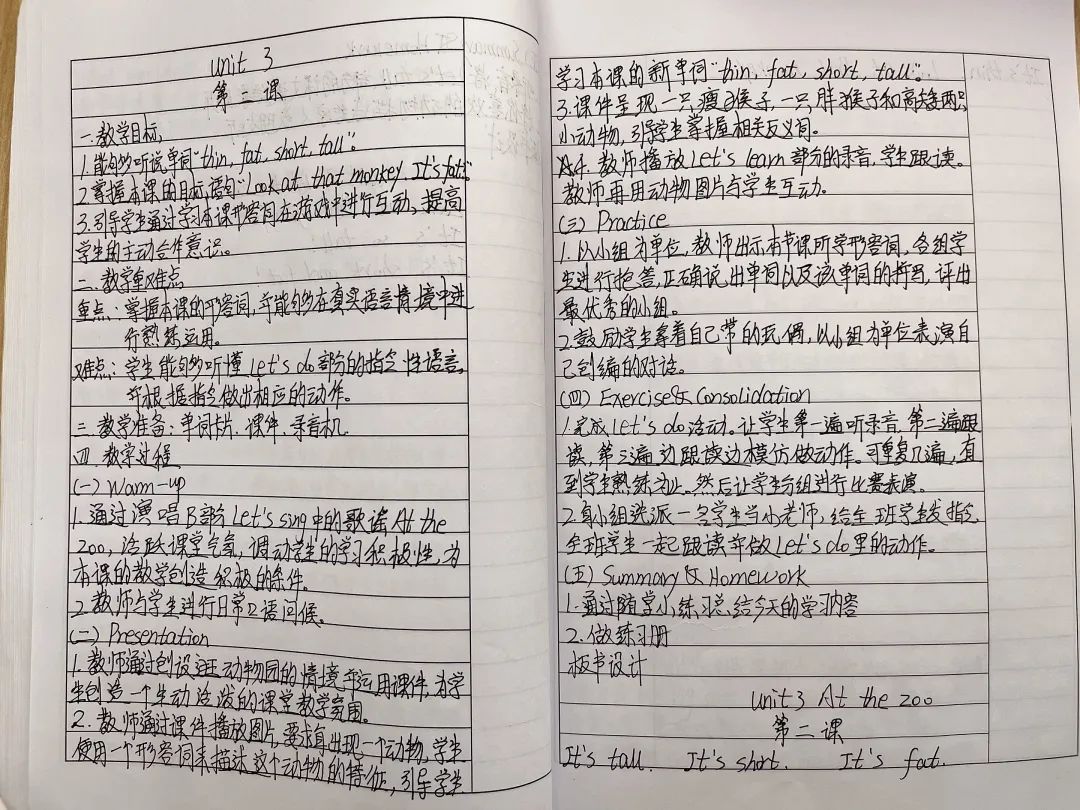 Unit 3
第二课
一.教学目标
1.能够听说单词"thin, fat, short, tall".
2.掌握本课的目标语句"Look at that monkey. It's fat."
3.引导学生通过学习本课形容词在游戏中进行互动,提高
学生的主动合作意识。
二.教学重难点
重点:掌握本课的形容词,并能够在真实语言情境中进
行熟练运用。
难点:学生能够听懂Let's do部分的指令性语言,
并根据指令做出相应的动作。
三.教学准备:单词卡片.课件.录音机.
四.教学过程
(一) Warm-up
1.通过演唱B部分Let's sing中的歌谣At the
zoo,活跃课堂气氛,调动学生的学习积极性,为
本课的教学创造积极的条件。
2.教师与学生进行日常口语问候。
(二) Presentation
1.教师通过创设逛动物园的情境并运用课件,为学
生创造一个生动活泼的课堂教学氛围。
2.教师通过课件播放图片,要求每出现一个动物,学生
使用一个形容词来描述这个动物的特征,引导学生
学习本课的新单词"thin, fat, short, tall".
3.课件呈现一只瘦猴子,一只胖猴子和高矮两只
小动物,引导学生掌握相关反义词。
4.教师播放Let's learn部分的录音,学生跟读。
教师再用动物图片与学生互动。
(三) Practice
1.以小组为单位,教师出示本节课所学形容词,各组学
生进行抢答,正确说出单词以及该单词的拼写,评出
最优秀的小组。
2.鼓励学生拿着自己带的玩偶,以小组为单位表演自
己创编的对话。
(四) Exercise & Consolidation
1.完成Let's do活动。让学生第一遍听录音,第二遍跟
读,第三遍边跟读边模仿做动作。可重复几遍,直
到学生熟练为止。然后让学生分组进行比赛表演。
2.每小组选派一名学生当小老师,给全班学生发指令,
全班学生一起跟读并做Let's do里的动作。
(五) Summary & Homework
1.通过随堂小练习总结今天的学习内容
2.做练习册
板书设计
Unit 3 At the zoo
第二课
It's tall. It's short. It's fat.